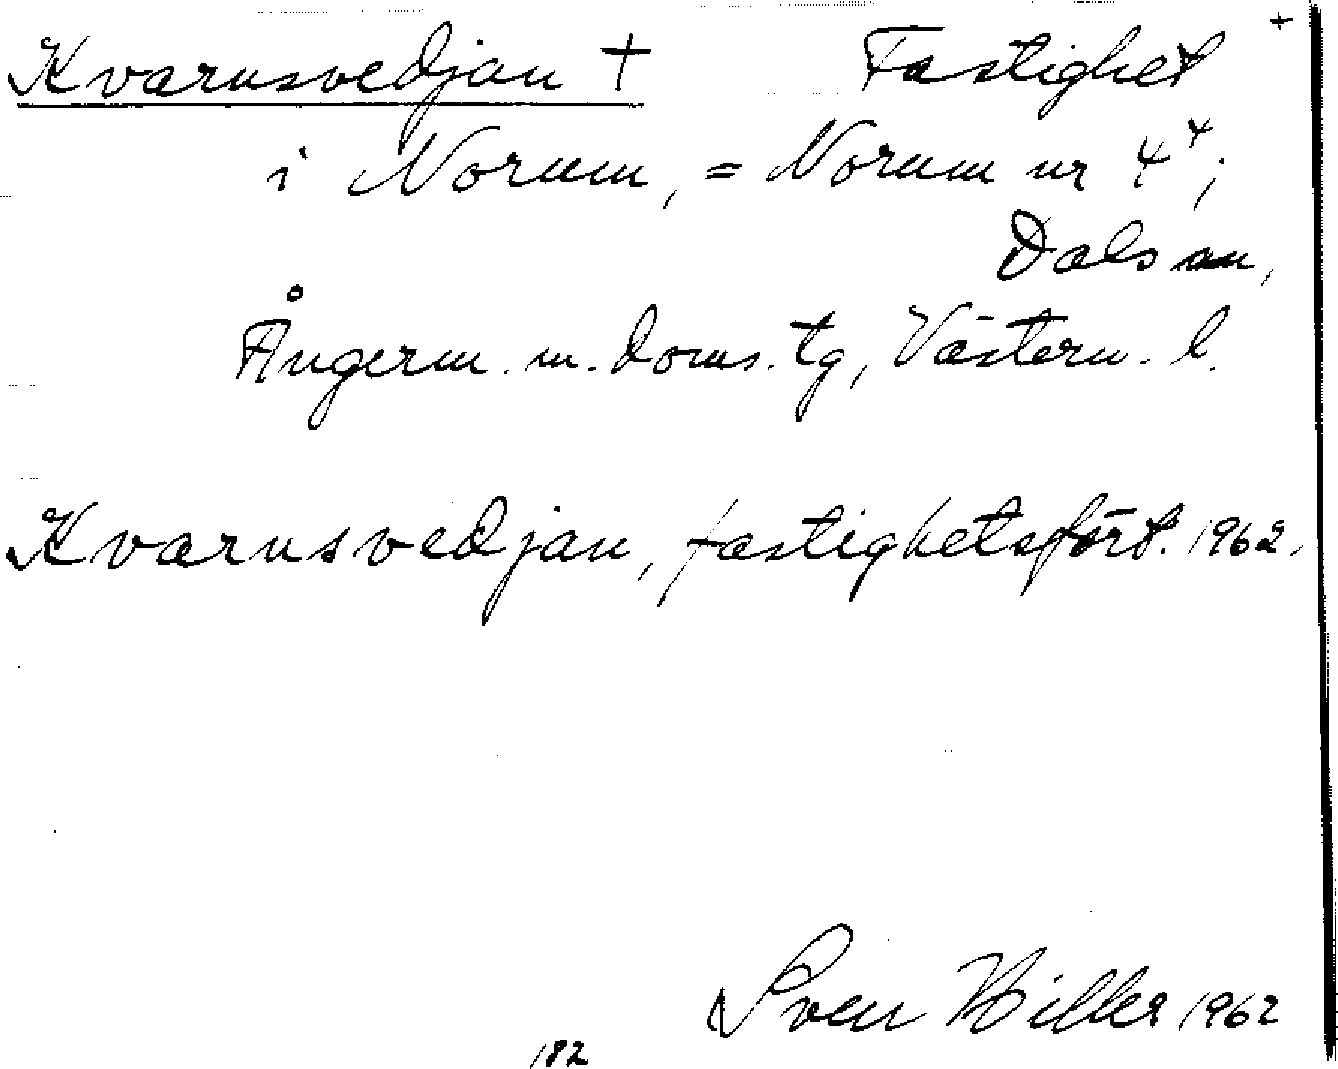 Kvarnsvedjan † Fastighet +
i Norum, = Norum nr 4⁴;
Dals sn,
Ångerm. m. doms. tg, Västern. l.
Kvarnsvedjan, fastighetsfört. 1962.
Sven Hiller 1962
182